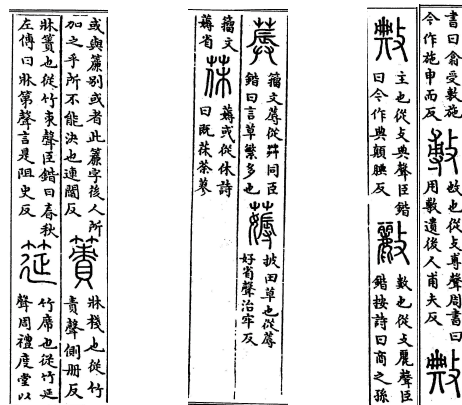 書曰翕受敷施
今作施申而反
敷
也從攴尃聲周書曰
用敷遺後人甫夫反
敟
敟
主也從攴典聲臣鍇
曰今作典顛腆反
數也從攴麗聲臣
鍇按詩曰商之孫
蓐
籀文蓐從茻同臣
鍇曰言草繁多也
薅
披田草也從蓐
好省聲治牢反
籀文
薅省
茠
薅或從休詩
曰既茠荼蓼
或與簾別或者此簾字後人所
加之乎所不能決也連閻反
簀
牀棧也從竹
責聲側册反
牀簀也從竹朿聲臣鍇曰春秋
左傳曰牀第聲言是阻史反
筵
竹席也從竹延
聲周禮度堂以